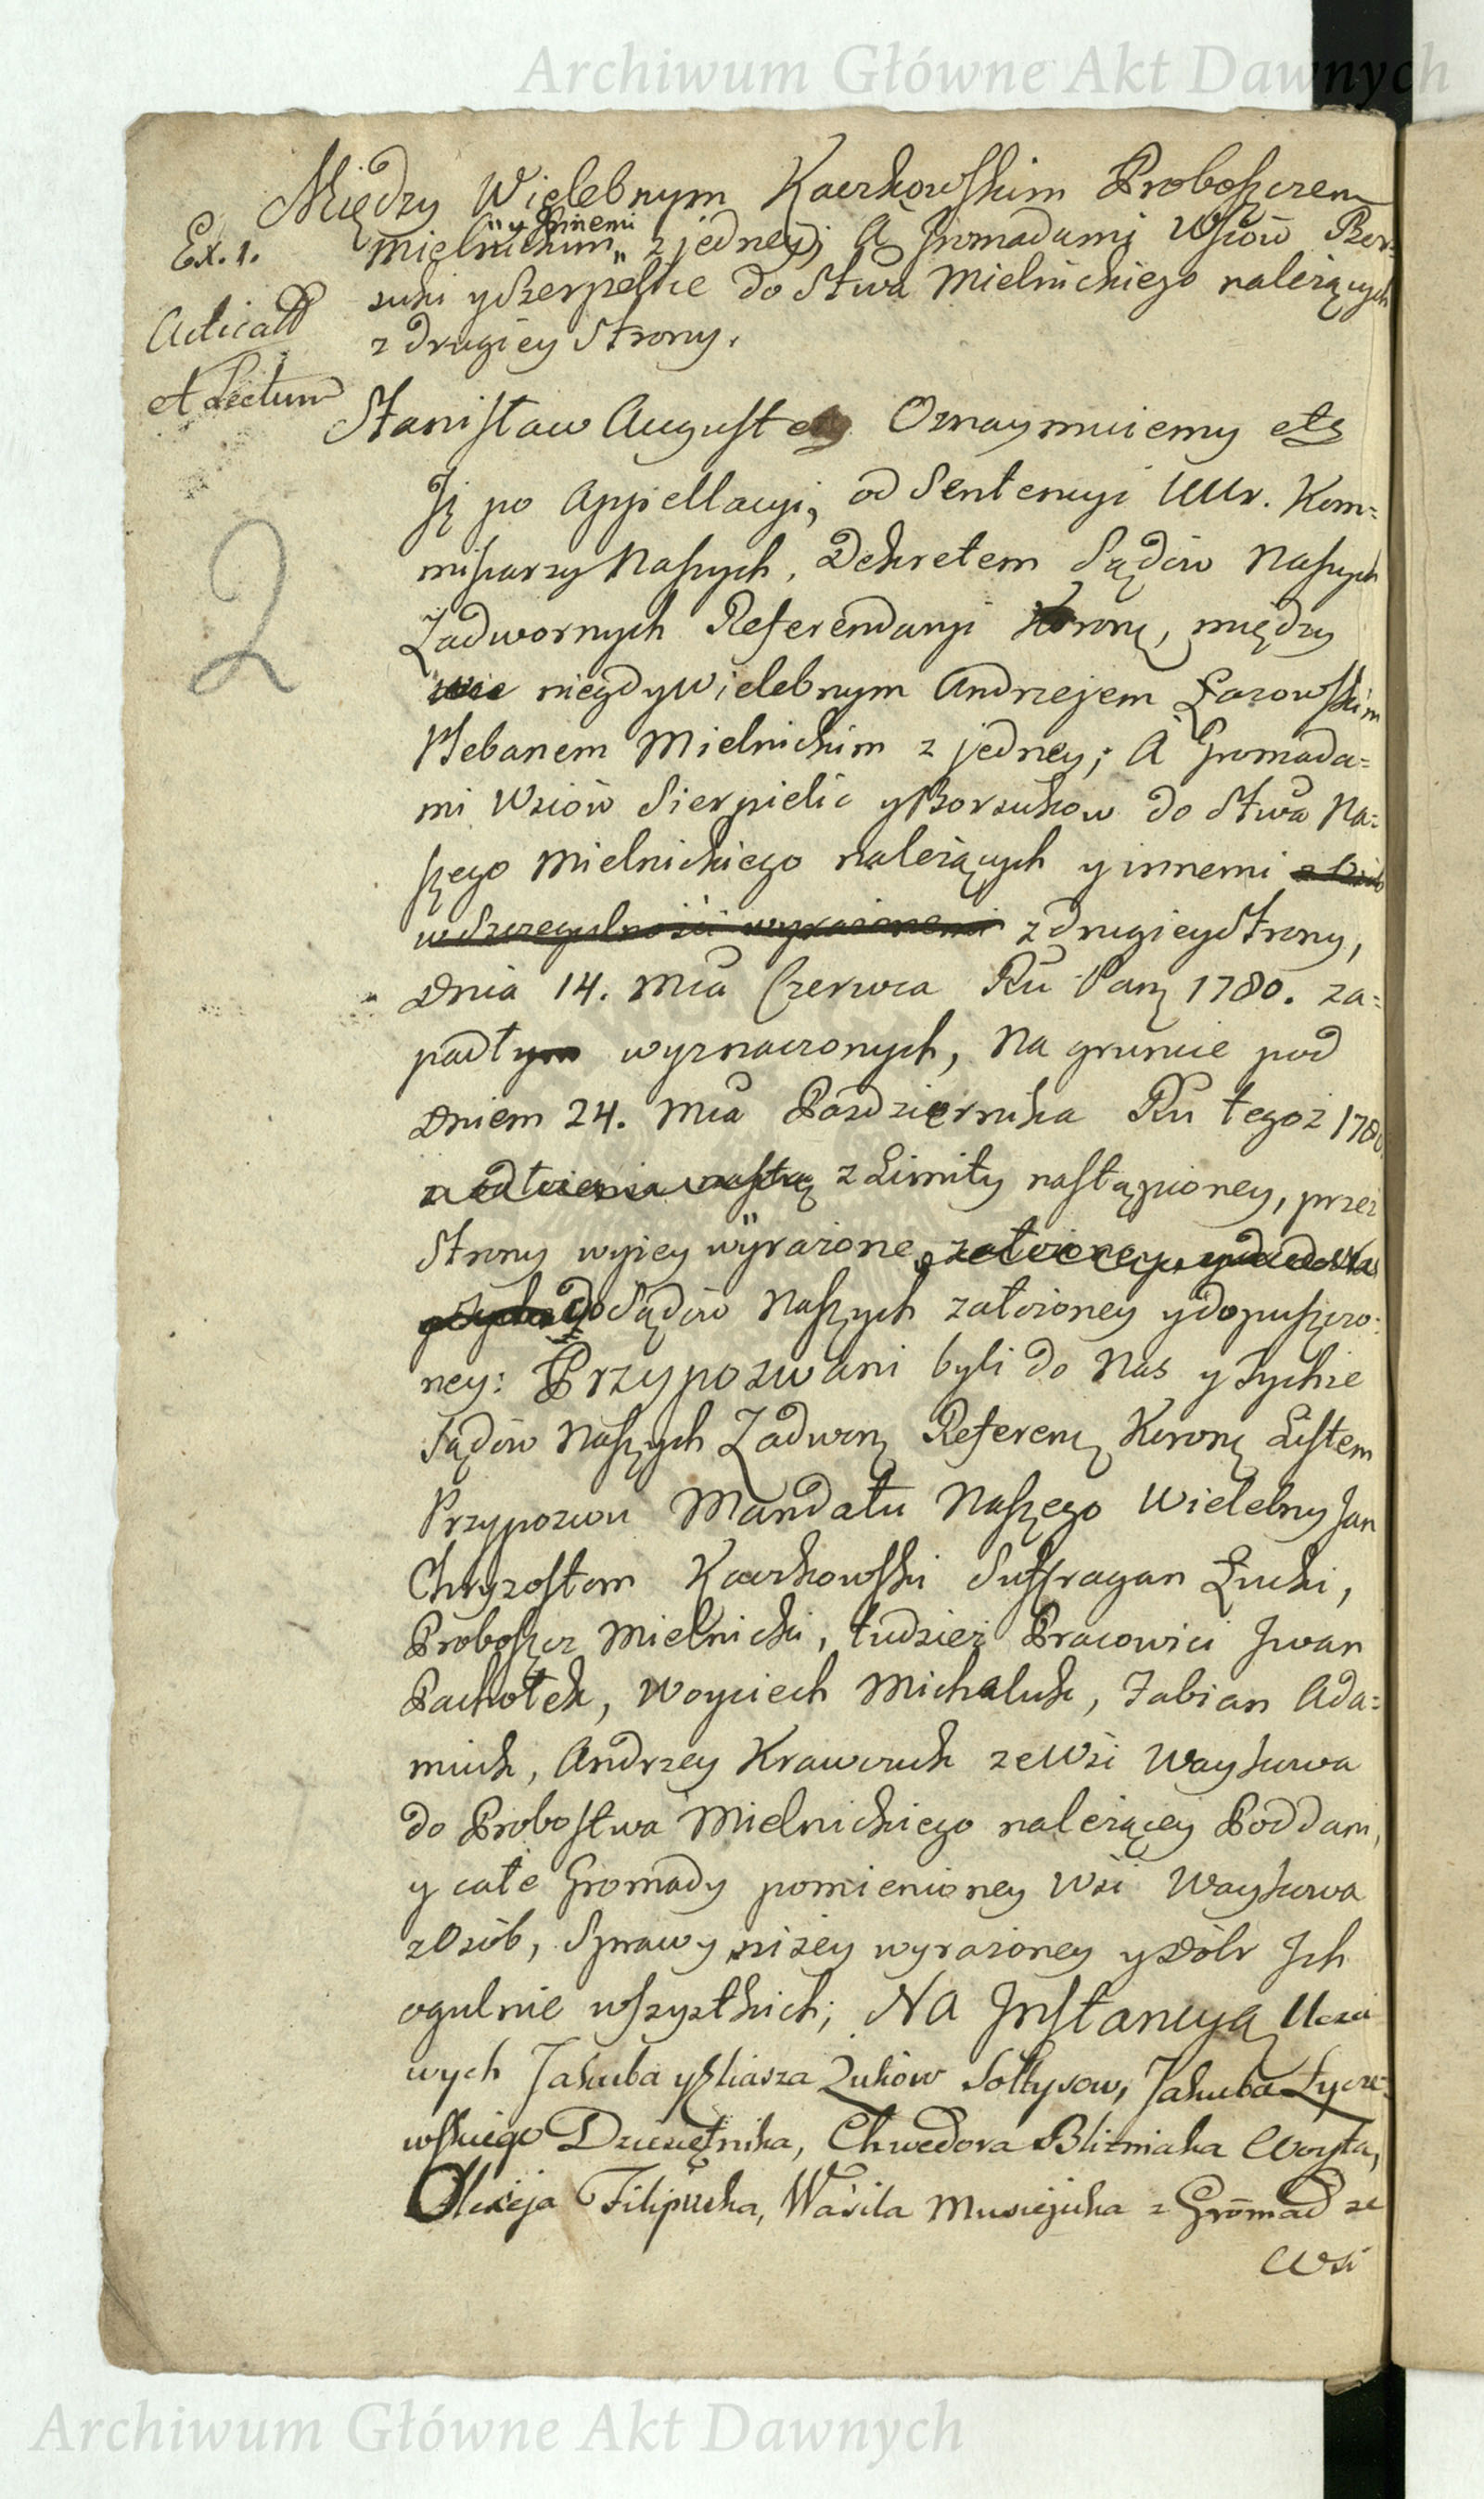 Archiwum Główne Akt Dawnych
Między Wielebnym Kaczkowskim Proboszczem
Ex. 1.
y Innemi
Mielnickim z jedney; A Gromadami Wsiów Bor=
suki y Serpelice do Stwa Mielnickiego należących
Acticatt
z drugiey Strony.
et Lectum
Stanisław August etc Oznaymuiemy etc
Iż po Appellacyi, od Sentencyi UUr. Kom=
missarzy Naszych, Dekretem Sądów Naszych
2
Zadwornych Referendaryi Koronę, między
niegdy Wielebnym Andrzejem Łazowskim
Plebanem Mielnickim z jedney; A Gromada=
mi Wsiów Sierpielic y Borsukow do Stwa Na=
szego Mielnickiego należących y innemi
w Szczegulności wyrażonemi z drugiey Strony,
Dnia 14. Mca Czerwca Ru Pang 1780. za=
padłym wyznaczonych, Na gruncie pod
Dniem 24. Mca Pazdziernika Ru tegoż 1780
z Limity nastąpioney, przez
Strony wyżey wyrażone
do Sądów Naszych założoney y dopuszczo=
ney: Przypozwani byli do Nas y tychże
Sądów Naszych Zadworę Referenę Koronę Listem
Przypozwu Mandatu Naszego Wielebny Jan
Chryzostom Kaczkowski Suffragan Łucki,
Proboszcz Mielnicki, tudzież Pracowici Iwan
Pachołek, Woyciech Michaluk, Fabian Ada=
miuk, Andrzey Krawczuk ze Wsi Waykowa
do Probostwa Mielnickiego należącey Poddani,
y całe Gromady pomienioney Wsi Waykowa
z Osób, Sprawy niżey wyrażoney y Dóbr Ich
ogulnie wszystkich; Na Instancyą Uczci
wych Jakuba y Eliasza Zuków Sołtysow, Jakuba Łycze=
wskiego Dziesiętnika, Chwedora Blizniaka Woyta,
Olexieja Filipiuka, Wasila Musiejuka z Gromad ze
Wsi
Archiwum Główne Akt Dawnych